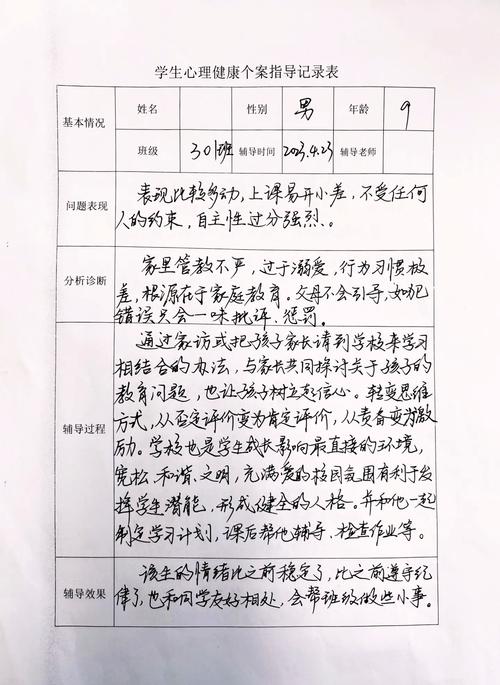 学生心理健康个案指导记录表
基本情况 姓名 性别 男 年龄 9
班级 301班 辅导时间 2023.4.23 辅导老师
问题表现
表现比较多动，上课易开小差，不受任何
人的约束，自主性过分强烈。
分析诊断
家里管教不严，过于溺爱，行为习惯极
差，根源在于家庭教育。父母不会引导，如犯
错误只会一味批评、惩罚。
辅导过程
通过家访或把孩子家长请到学校来学习
相结合的办法，与家长共同探讨关于孩子的
教育问题，也让孩子树立起信心。转变思维
方式，从否定评价变为肯定评价，从责备变为激
励。学校也是学生成长影响最直接的环境，
宽松、和谐、文明，充满爱的校园氛围有利于发
挥学生潜能，形成健全的人格。并和他一起
制定学习计划，课后帮他辅导、检查作业等。
辅导效果
该生的情绪比之前稳定了，比之前遵守纪
律了，也和同学友好相处，会帮班级做些小事。